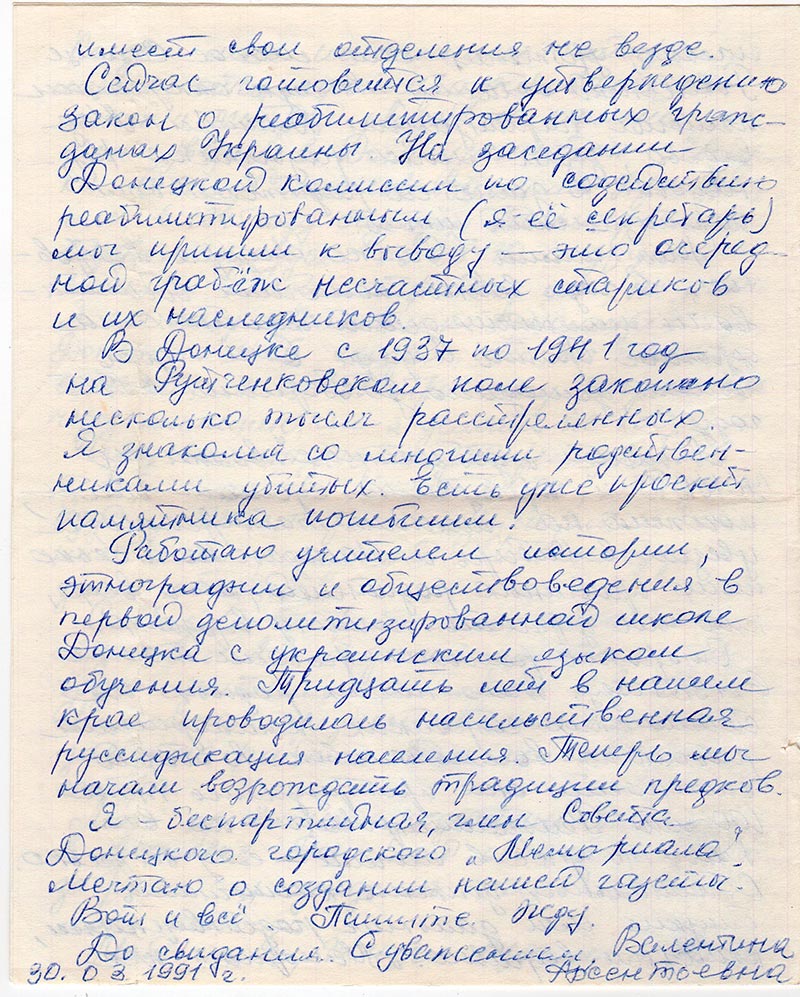 имеет свои отделения не везде.
Сейчас готовится к утверждению
закон о реабилитированных граж-
данах Украины. На заседании
Донецкой комиссии по содействию
реабилитированным (я её секретарь)
мы пришли к выводу — это очеред-
ной грабёж несчастных стариков
и их наследников.
В Донецке с 1937 по 1941 год
на Рутченковском поле закопано
несколько тысяч расстрелянных.
Я знакома со многими родствен-
никами убитых. Есть уже проект
памятника погибшим.
Работаю учителем истории,
этнографии и обществоведения в
первой деполитизированной школе
Донецка с украинским языком
обучения. Тридцать лет в нашем
крае проводилась насильственная
руссификация населения. Теперь мы
начали возрождать традиции предков.
Я беспартийная, член Совета
Донецкого городского „Мемориала".
Мечтаю о создании нашей газеты.
Вот и всё. Пишите. Жду.
До свидания. С уважением, Валентина
30.03.1991 г. Арсентьевна